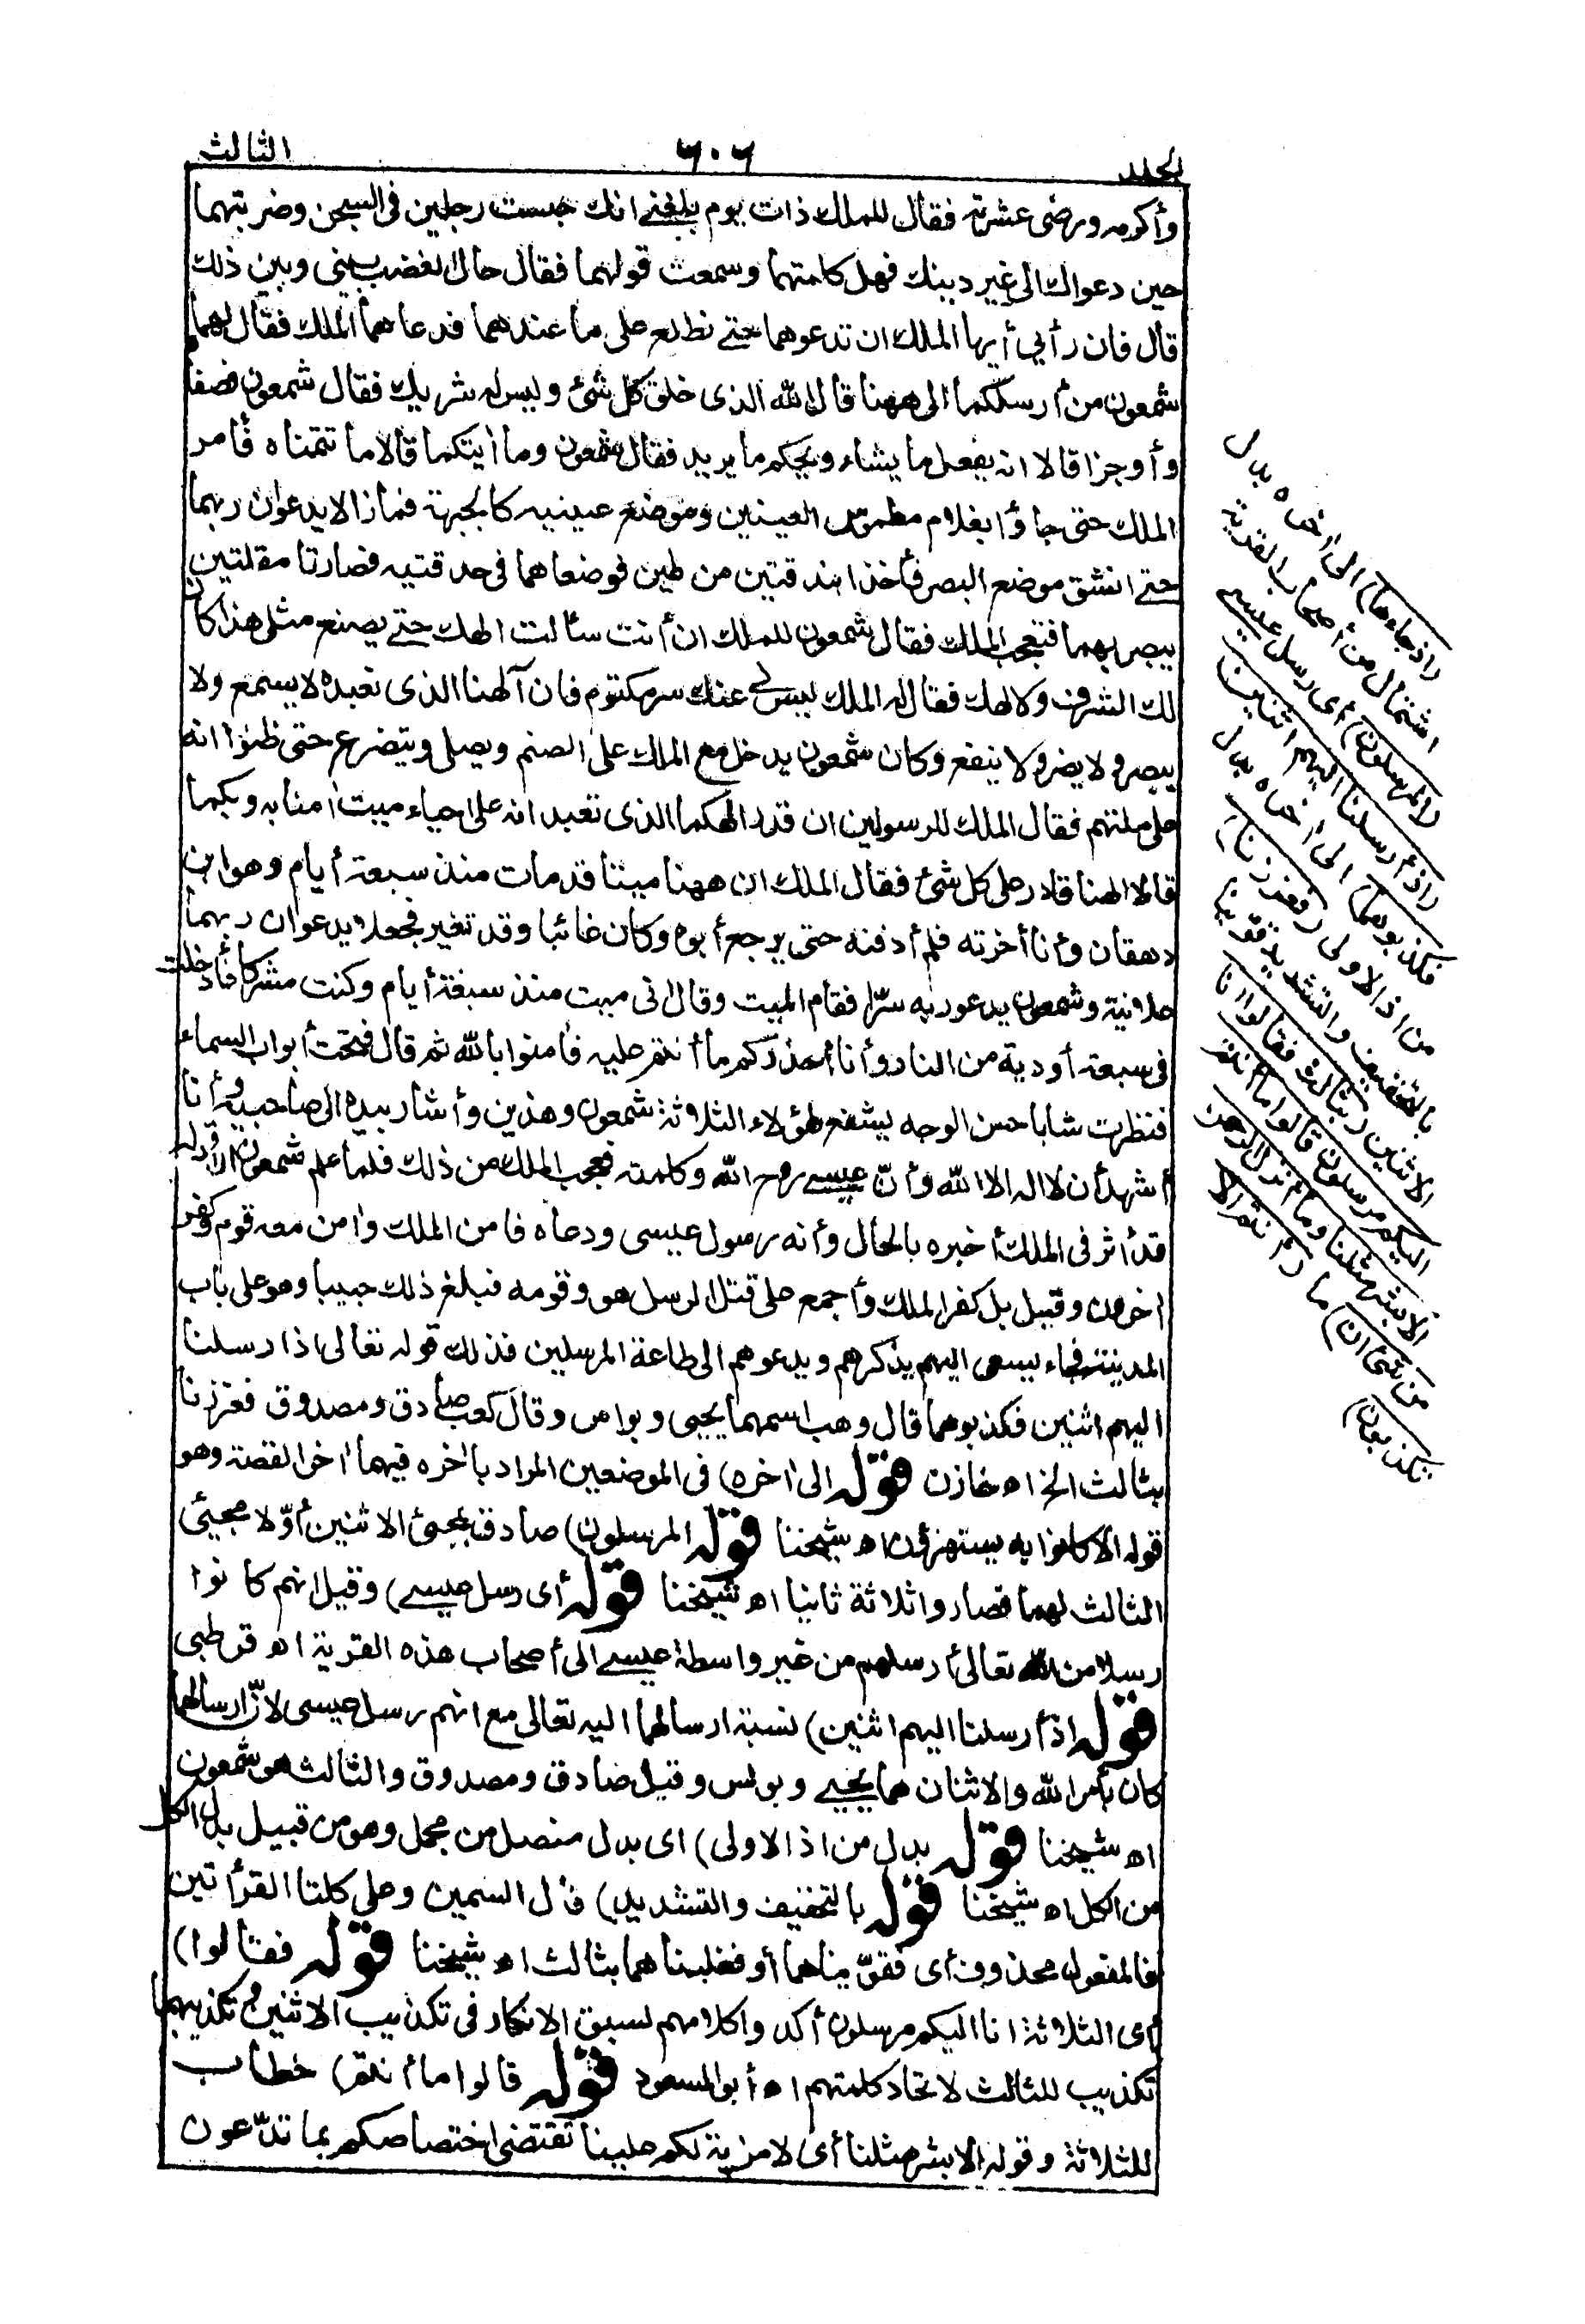 المجلد ٦٠٦ الثالث
وأكرمه ورضى عشرته فقال للملك ذات يوم بلغنى انك حبست رجلين فى السجن وضربتهما
حين دعواك الى غير دينك فهل كلمتهما وسمعت قولهما فقال حال الغضب بينى وبين ذلك
قال فان رأيى أيها الملك ان تدعوهما حتى نطلع على ما عندهما فدعاهما الملك فقال لهما
شمعون من أرسلكما الى ههنا قالا الله الذى خلق كل شئ وليس له شريك فقال شمعون فصفا
وأوجزا قالا انه يفعل ما يشاء ويحكم ما يريد فقال شمعون وما اٰيتكما قالا ما تتمناه فأمر
الملك حتى جاؤا بغلام مطموس العينين وموضع عينيه كالجبهة فمازالا يدعوان ربهما
حتى انشق موضع البصر فأخذا بندقتين من طين فوضعاهما فى حدقتيه فصارتا مقلتين
يبصر بهما فتعجب الملك فقال شمعون للملك ان أنت سألت الهك حتى يصنع مثل هذا كان
لك الشرف ولالهك فقال له الملك ليس لى عنك سر مكتوم فان آلهنا الذى نعبده لا يسمع ولا
يبصر ولا يضر ولا ينفع وكان شمعون يدخل مع الملك على الصنم ويصلى ويتضرع حتى ظنوا انه
على ملتهم فقال الملك للرسولين ان قدر الهكما الذى تعبدانه على احياء ميت اٰمنا به وبكما
قالا الهنا قادر على كل شئ فقال الملك ان ههنا ميتا قد مات منذ سبعة أيام وهو ابن
دهقان وأنا أخرته فلم أدفنه حتى يرجع أبوه وكان غائبا وقد تغير فجعلا يدعوان ربهما
علانية وشمعون يدعو ربه سرّا فقام الميت وقال انى ميت منذ سبعة أيام وكنت مشركا فأدخلت
فى سبعة أودية من النار وأنا أحذركم ما أنتم عليه فاٰمنوا بالله ثم قال فتحت أبواب السماء
فنظرت شابا حسن الوجه يشفع لهؤلاء الثلاثة شمعون وهذين وأشار بيده الى صاحبيه وأنا
أشهد أن لا اله الا الله وأنّ عيسى روح الله وكلمته فعجب الملك من ذلك فلما علم شمعون ان قوله
قد أثر فى الملك أخبره بالحال وأنه رسول عيسى ودعاه فاٰمن الملك واٰمن معه قوم وكفر
اٰخرون وقيل بل كفر الملك وأجمع على قتل الرسل هو وقومه فبلغ ذلك حبيبا وهو على باب
المدينة فجاء يسعى اليهم يذكرهم ويدعوهم الى طاعة المرسلين فذلك قوله تعالى اذا رسلنا
اليهم اثنين فكذبوهما قال وهب اسمهما يحيى وبولس وقال كعب صادق ومصدوق فعززنا
بثالث الخ اه خازن قوله الى اٰخره) فى الموضعين المراد باٰخره فيهما اٰخر القصة وهو
قوله الا كانوا به يستهزؤن اه شيخنا قوله المرسلون) صادق بمجئ الاثنين أوّلا ومجيئ
الثالث لهما فصاروا ثلاثة ثانيا اه شيخنا قوله أى رسل عيسى) وقيل انهم كانوا
رسلا من الله تعالى أرسلهم من غير واسطة عيسى الى أصحاب هذه القرية اه قرطبى
قوله اذ أرسلنا اليهم اثنين) نسبة ارسالهما اليه تعالى مع انهم رسل عيسى لانّ ارسالهما
كان بأمر الله والاثنان هما يحيى وبولس وقيل صادق ومصدوق والثالث هو شمعون
اه شيخنا قوله بدل من اذ الاولى) اى بدل مفصل من مجمل وهو من قبيل بدل الكل
من الكل اه شيخنا قوله بالتخفيف والتشديد) قال السمين وعلى كلتا القرأتين
فالمفعول محذوف أى فقوّيناهما أو فغلبناهما بثالث اه شيخنا قوله فقالوا)
أى الثلاثة انا اليكم مرسلون أكدوا كلامهم لسبق الانكار فى تكذيب الاثنين وتكذيبهما
تكذيب للثالث لاتحاد كلمتهم اه أبو السعود قوله قالوا ما أنتم) خطاب
للثلاثة وقوله الا بشر مثلنا أى لا مزية لكم علينا تقتضى اختصاصكم بما تدّعون
(اذ جاءها) الى اٰخره بدل
اشتمال من أصحاب القرية
(المرسلون) أى رسل عيسى
(اذ أرسلنا اليهم اثنين
فكذبوهما) الى اٰخره بدل
من اذ الاولى (فعززنا)
بالتخفيف والتشديد قوينا
الاثنين (بثالث فقالوا انا
اليكم مرسلون قالوا ما أنتم
الا بشر مثلنا وما أنزل الرحمن
من شئ ان) ما (أنتم الا
تكذبون)